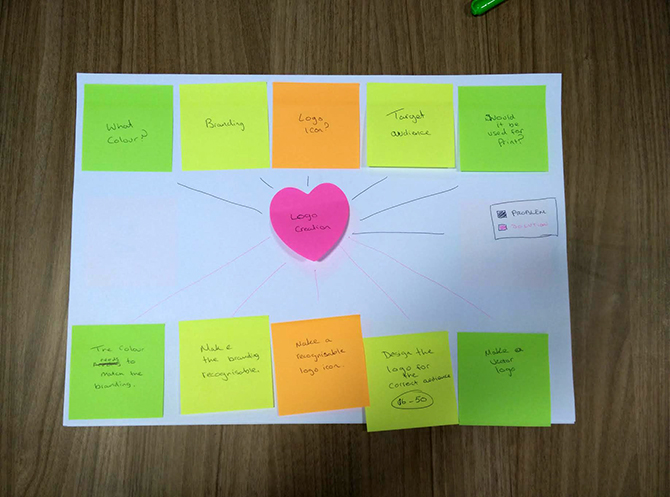 What
Colour?
Branding
Logo
icon?
Target
audience
Would
it be
used for
Print?
Logo
Creation
PROBLEM
The colour
to
match the
branding.
Make
the branding
recognisable.
Make a
recognisable
logo icon.
Design the
logo for
the
correct audience
Make a
vector
logo